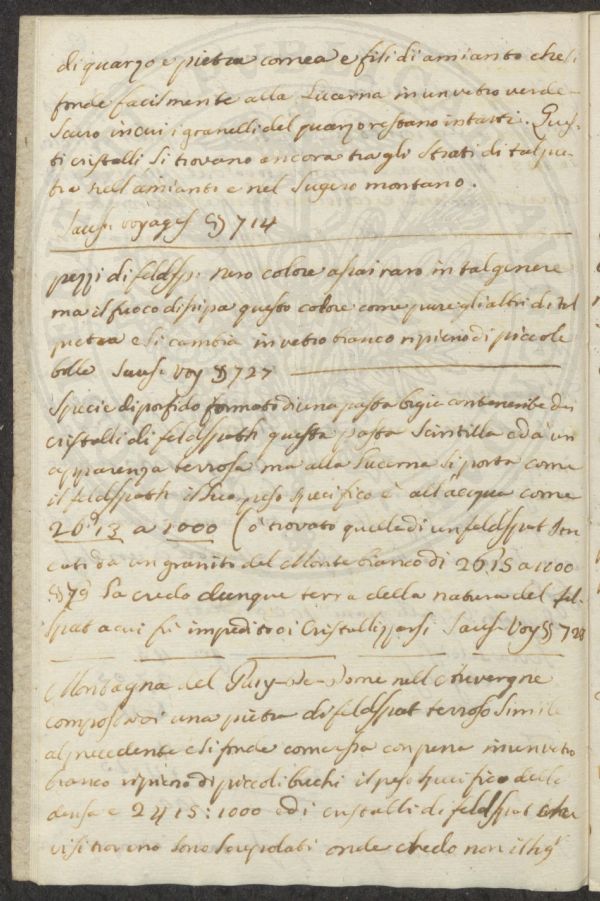 di quarzo e pietra cornea e fili di amianto che si
fonde facilmente alla Lucerna in un vetro verde-
scuro in cui i granelli del quarzo restano intatti. Ques-
ti cristalli si trovano ancora tra gli strati di talque-
tra nell amianti e nel Sugero montano.
Sauss. voyages § 714
pezzi di feldsp. nero colore assai raro in tal genere
ma il fuoco dissipa questo colore come pure gli altri di tal
pietra e si cambia in vetro bianco ripieno di piccole
bolle Sauss. Voy § 727
Specie di porfido formato di una pasta bigia contenente dei
cristalli di feldspath questa pasta scintilla ed à un
apparenza terrosa ma alla Lucerna si porta come
il feldspath il suo peso specifico è all'acqua come
2613 a 1000 (ò trovato quello di un feldspat
cati da un granito del Monte bianco di 2615 a 1000
La credo dunque terra della natura del fel-
spat a cui fù impedito di Cristallizzarsi Sauss. Voy § 728
Montagna del Puy-de-Dome nell Auvergne
composta di una pietra di feldspat terroso simile
al precedente e si fonde com'essa con pena in un vetro
bianco ripieno di piccoli buchi il peso specifico delle
dense e 2415:1000 ed i cristalli di feldspat che
vi si trovano sono screpolati onde credo non